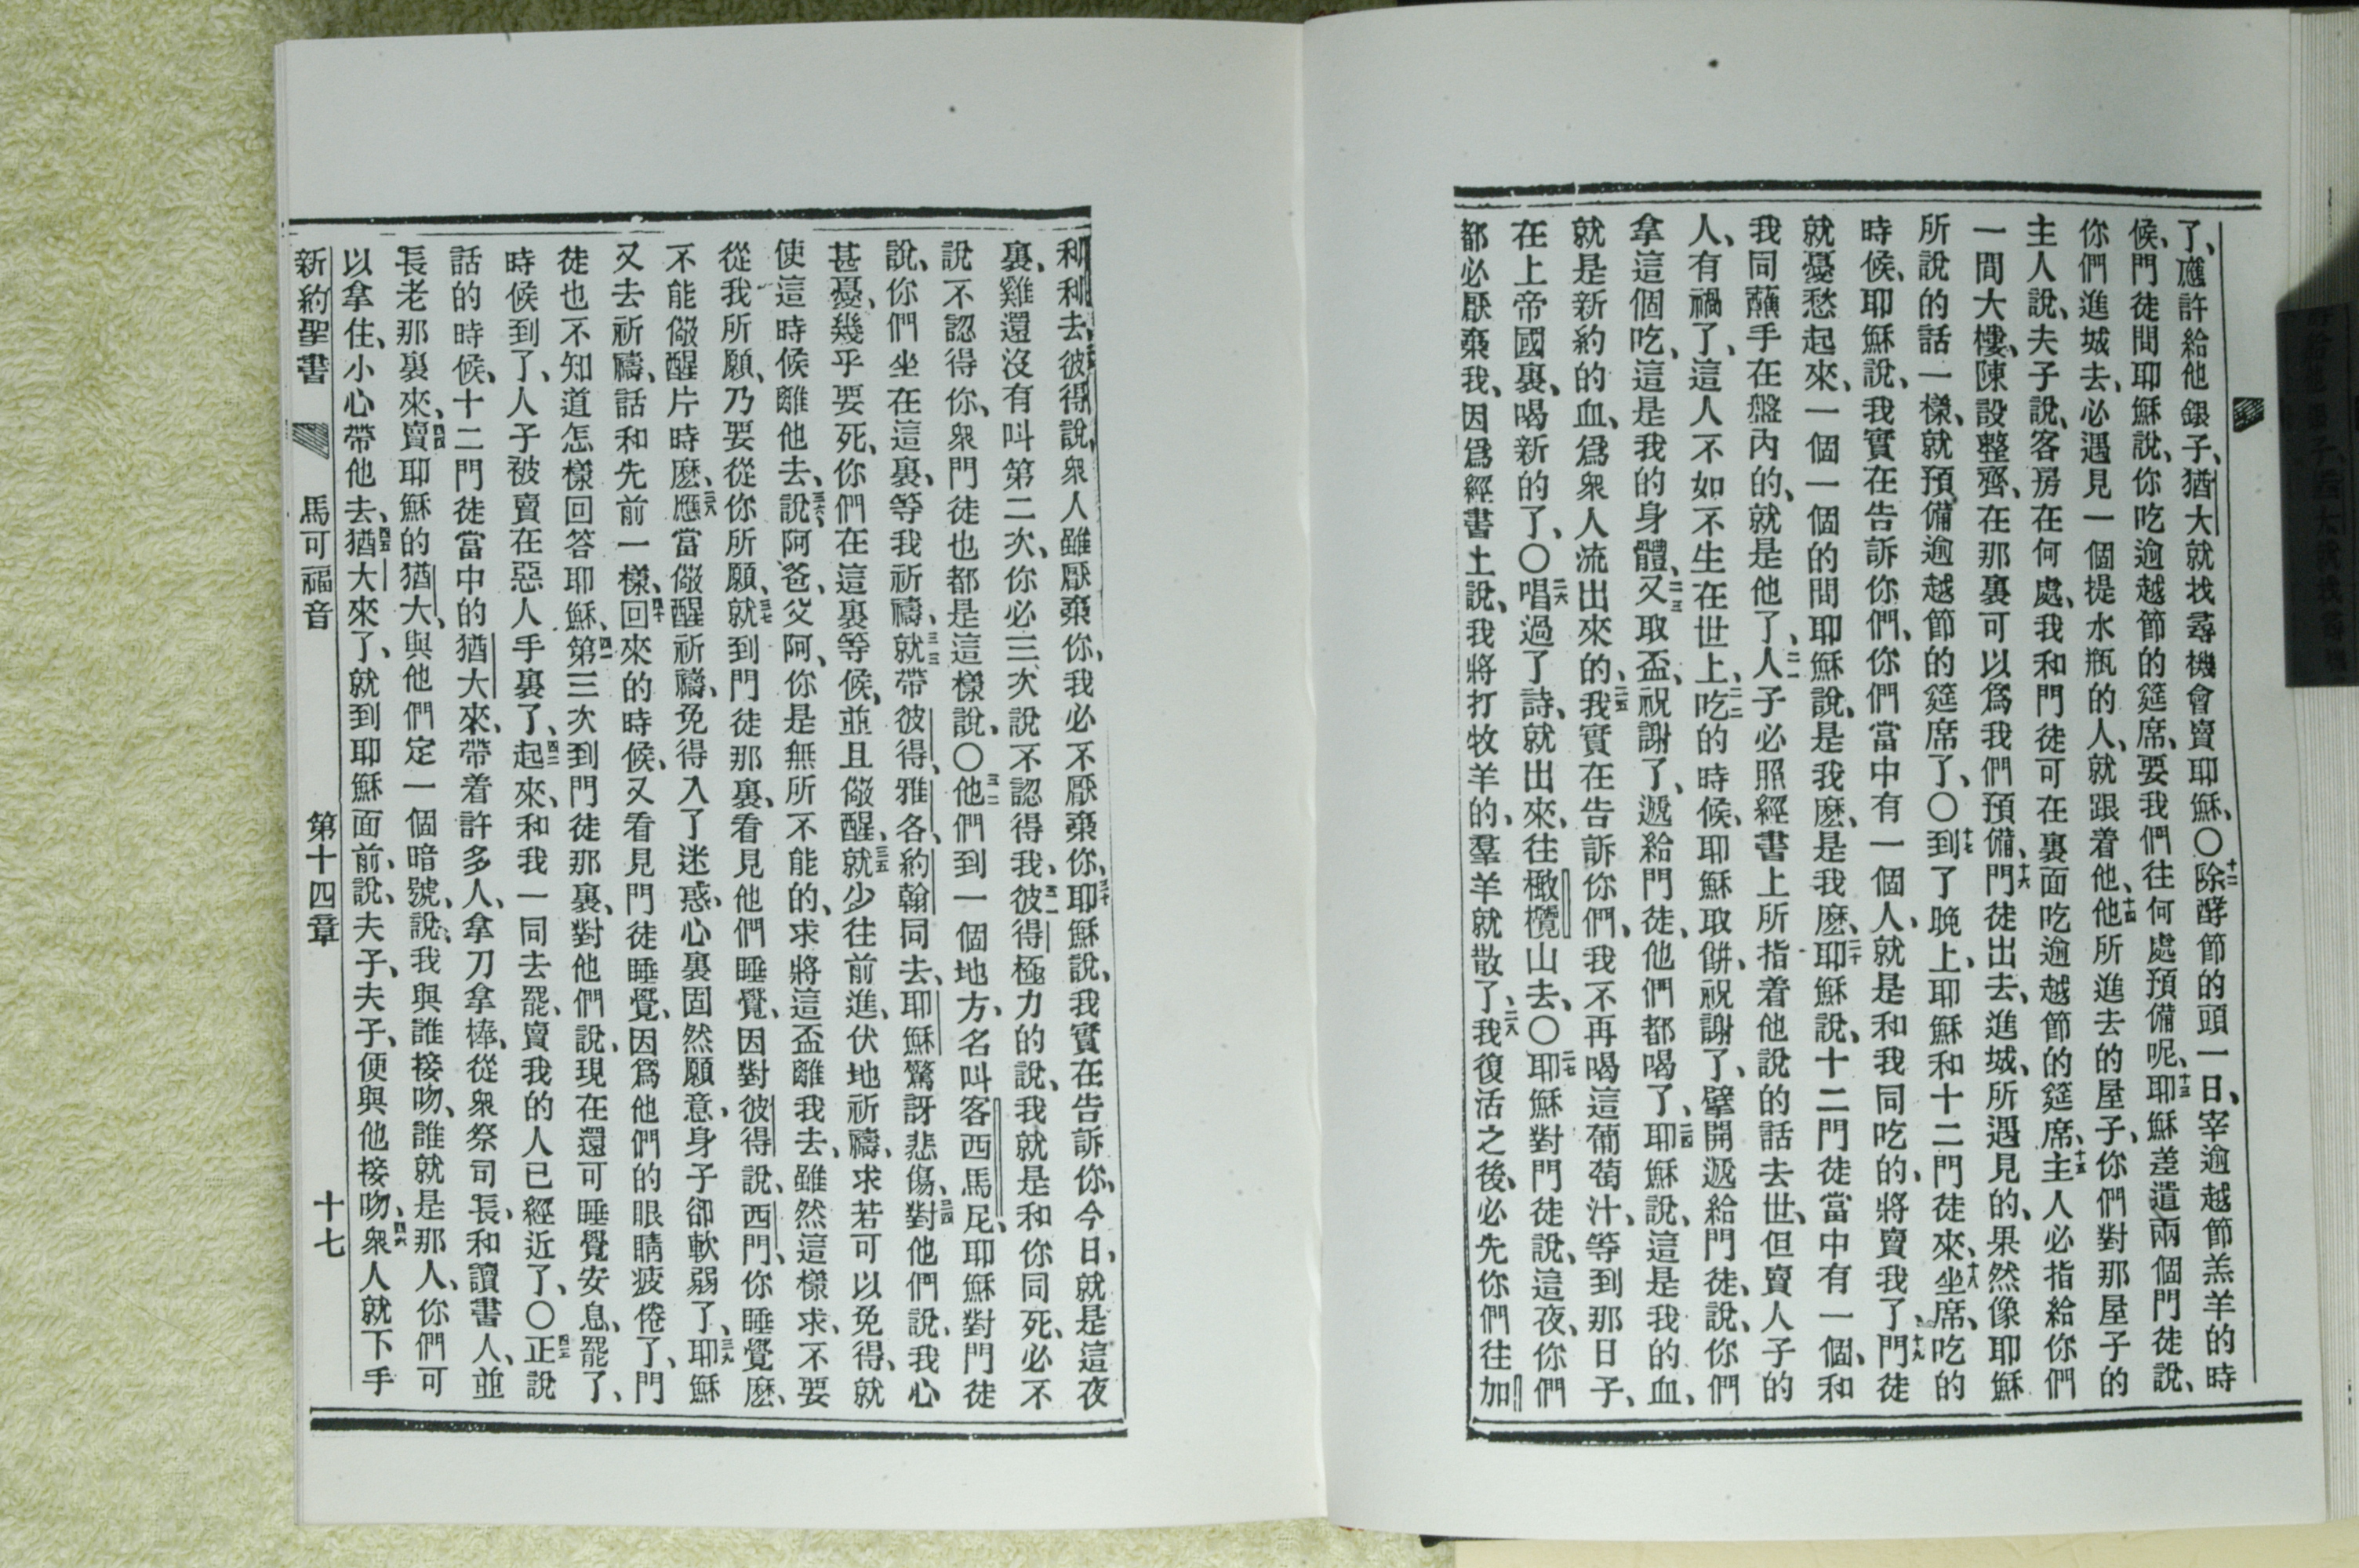 了、應許給他銀子、猶大就找尋機會賣耶穌、〇十二除酵節的頭一日、宰逾越節羔羊的時
候、門徒問耶穌說、你吃逾越節的筵席、要我們往何處預備呢、十三耶穌差遣兩個門徒說、
你們進城去、必遇見一個提水瓶的人、就跟着他、十四他所進去的屋子、你們對那屋子的
主人說、夫子說、客房在何處、我和門徒可在裏面吃逾越節的筵席、十五主人必指給你們
一間大樓、陳設整齊、在那裏可以爲我們預備、十六門徒出去、進城、所遇見的、果然像耶穌
所說的話一樣、就預備逾越節的筵席了、〇十七到了晚上、耶穌和十二門徒來、十八坐席、吃的
時候、耶穌說、我實在告訴你們、你們當中有一個人、就是和我同吃的、將賣我了、十九門徒
就憂愁起來、一個一個的問耶穌說、是我麽、是我麽、二十耶穌說、十二門徒當中有一個、和
我同蘸手在盤內的、就是他了、二一人子必照經書上所指着他說的話去世、但賣人子的
人、有禍了、這人不如不生在世上、二二吃的時候、耶穌取餅、祝謝了、擘開遞給門徒、說、你們
拿這個吃、這是我的身體、二三又取盃、祝謝了、遞給門徒、他們都喝了、二四耶穌說、這是我的血、
就是新約的血、爲衆人流出來的、二五我實在告訴你們、我不再喝這葡萄汁、等到那日子、
在上帝國裏、喝新的了、〇二六唱過了詩、就出來、往橄欖山去、〇二七耶穌對門徒說、這夜、你們
都必厭棄我、因爲經書上說、我將打牧羊的、羣羊就散了、二八我復活之後、必先你們往加
利利去、彼得說、衆人雖厭棄你、我必不厭棄你、三十耶穌說、我實在告訴你、今日、就是這夜
裏、雞還沒有叫第二次、你必三次說不認得我、三一彼得極力的說、我就是和你同死、必不
說不認得你、衆門徒也都是這樣說、〇三二他們到一個地方、名叫客西馬尼、耶穌對門徒
說、你們坐在這裏、等我祈禱、三三就帶彼得、雅各、約翰同去、耶穌驚訝悲傷、三四對他們說、我心
甚憂、幾乎要死、你們在這裏等候、並且儆醒、三五就少往前進、伏地祈禱、求若可以免得、就
使這時候離他去、三六說、阿爸、父阿、你是無所不能的、求將這盃離我去、雖然這樣求、不要
從我所願、乃要從你所願、三七就到門徒那裏、看見他們睡覺、因對彼得說、西門、你睡覺麽、
不能儆醒片時麽、三八應當儆醒祈禱、免得入了迷惑、心裏固然願意、身子卻軟弱了、三九耶穌
又去祈禱、話和先前一樣、四十回來的時候、又看見門徒睡覺、因爲他們的眼睛疲倦了、門
徒也不知道怎樣回答耶穌、四一第三次到門徒那裏、對他們說、現在還可睡覺安息、罷了、
時候到了、人子被賣在惡人手裏了、四二起來、和我一同去罷、賣我的人已經近了、〇四三正說
話的時候、十二門徒當中的猶大來、帶着許多人、拿刀拿棒、從衆祭司長、和讀書人、並
長老那裏來、四四賣耶穌的猶大、與他們定一個暗號、說、我與誰接吻、誰就是那人、你們可
以拿住、小心帶他去、四五猶大來了、就到耶穌面前、說、夫子、夫子、便與他接吻、四六衆人就下手
新約聖書 馬可福音 第十四章 十七